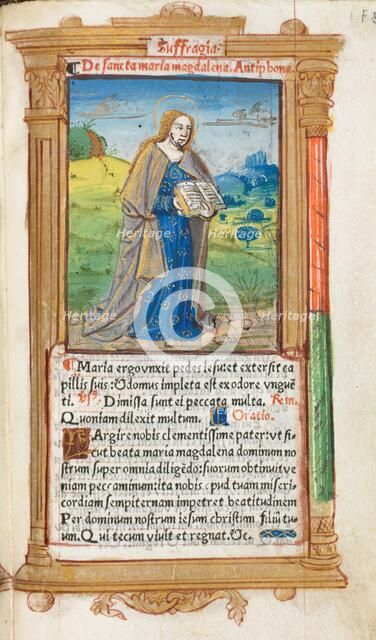 Suffragia.
De sancta maria magdalena. Antiphona.
Maria ergo vnxit pedes Iesu: et extersit ca
pillis suis: & domus impleta est ex odore vngue͂
ti. Dimissa sunt ei peccata multa. Resp.
Quoniam dilexit multum. Oratio.
LArgire nobis clementissime pater: vt si
cut beata maria magdalena dominum no
strum super omnia dilige͂do: suorum obtinuit ve
niam peccaminum: ita nobis apud tuam miseri
cordiam sempiternam impetret beatitudinem
Per dominum nostrum iesum christum filiu͂ tu
um. Qui tecum viuit et regnat. &c.
Heritage
Heritage
Heritage
Heritage
Heritage
Heritage